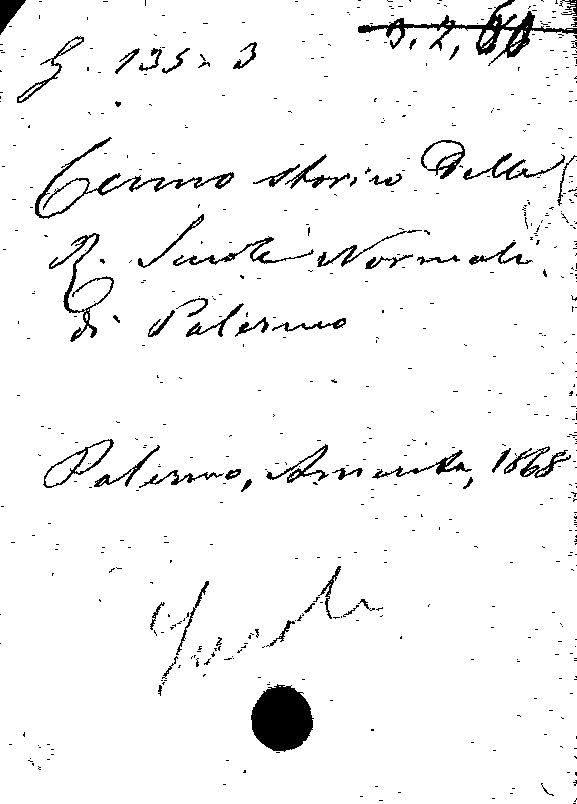 G. 135. 3
Cenno storico della
R. Scuola Normale
di Palermo
Palermo, Amenta, 1868
Scuole